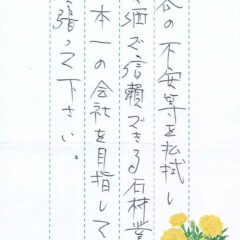 の不安等を払拭し
価で信頼できる石材業
本一の会社を目指して
張って下さい。